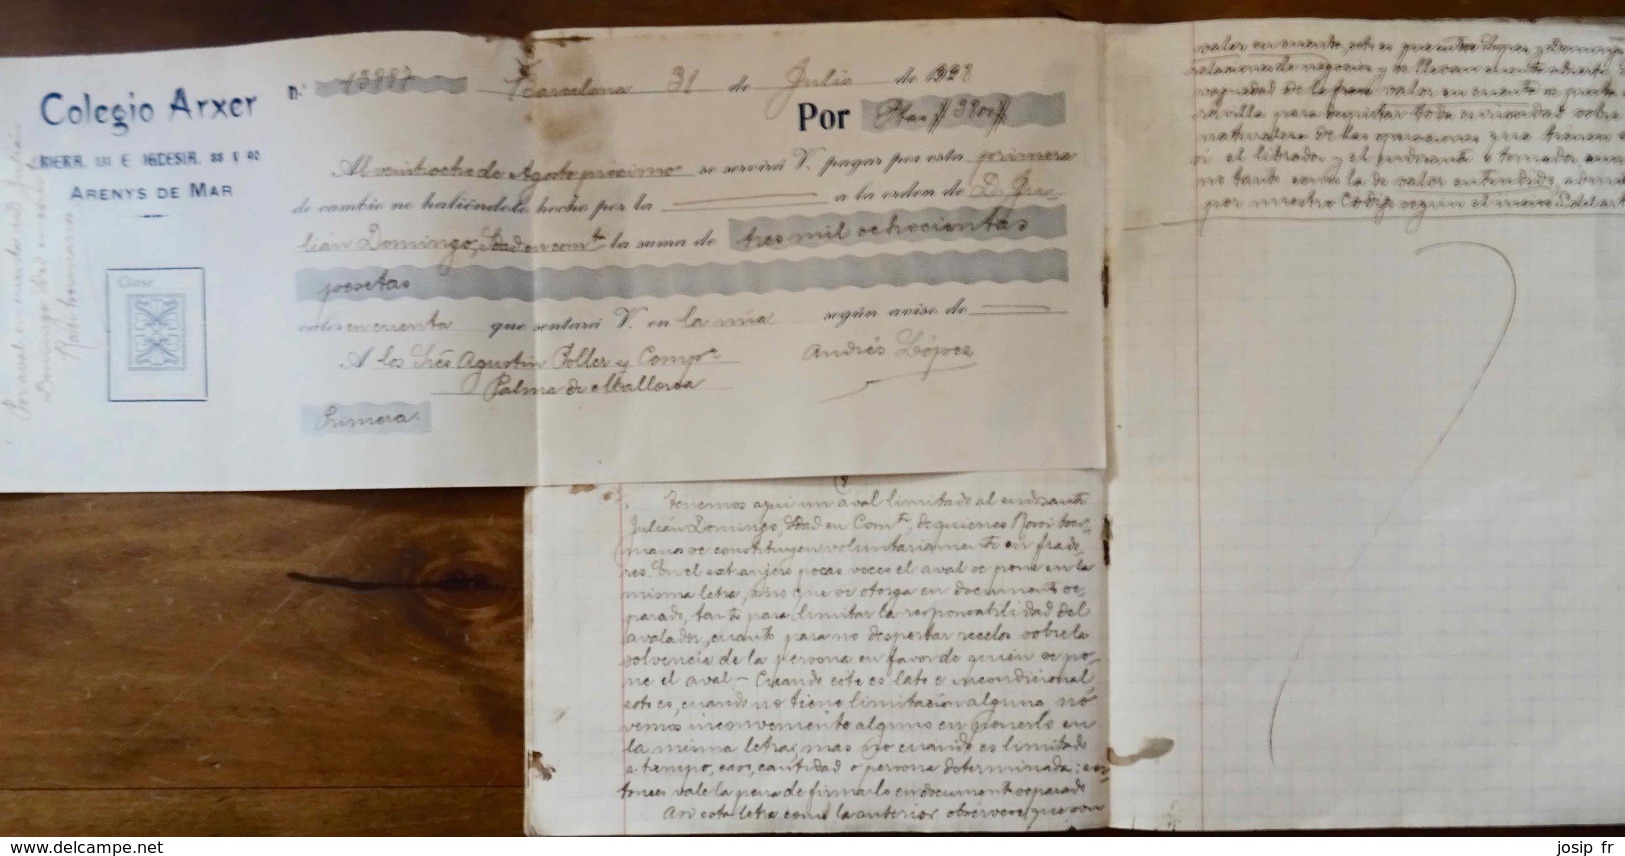 Colegio Arxer
ARENYS DE MAR
N.º 13887 Barcelona 31 de Julio de 1928
Por Ptas # 3800 #
Al veintiocho de Agosto próximo se servirá V. pagar por esta primera
de cambio no habiéndolo hecho por la a la orden de D. Ju-
lián Domingo, Sdad en comta la suma de tres mil ochocientas
pesetas
valor en cuenta que sentará V. en la mía según aviso de
A los Sres Agustín Soller y Compa
Andrés López
Palma de Mallorca
Primera.
Clase
Por aval en cuenta de Julián
Domingo Sdad en comta
hermanos
Tenemos aquí un aval limitado al endosante
Julián Domingo, Sdad en Comta, de quienes hermanos
se constituyen voluntariamente en fiado-
res. En el extranjero pocas veces el aval se pone en la
misma letra, sino que se otorga en documento se-
parado, tanto para limitar la responsabilidad del
avalador, cuanto para no despertar recelos sobre la
solvencia de la persona en favor de quien se po-
ne el aval — Cuando este es lato e incondicional
esto es, cuando no tiene limitación alguna, no
vemos inconveniente alguno en ponerlo en
la misma letra, mas no cuando es limitado
a tiempo, caso, cantidad o persona determinada: en-
tonces vale la pena de firmarlo en documento separado
En esta letra como la anterior obsérvese que son
valor en cuenta, esto es que entre López y Domingo
relaciones de negocios y se llevan cuenta
vaguedad de la frase valor en cuenta se presta
para despistar toda curiosidad sobre
naturaleza de las operaciones que
si el librador y el endosante o tomador
no tanto como la de valor entendido,
por nuestro Código según el
josip_fr